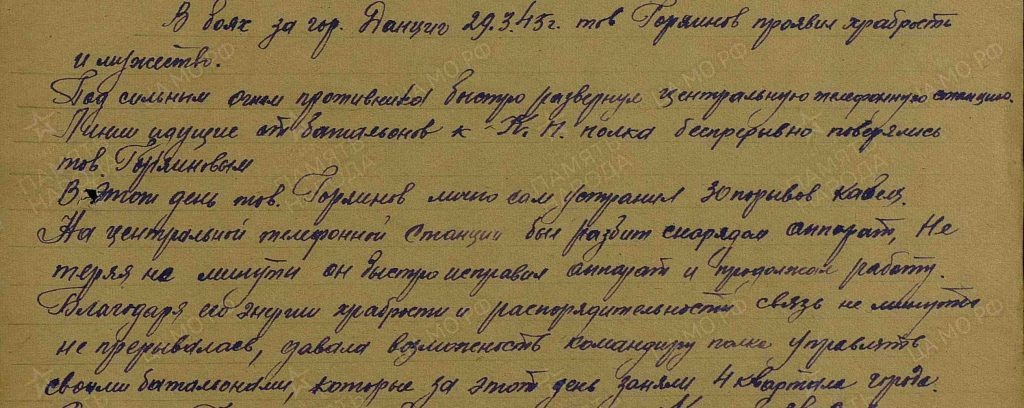 В боях за гор. Данциг 29.3.45г. тов Горяинов проявил храбрость
и мужество.
Под сильным огнем противника быстро развернул центральную телефонную станцию.
Линии идущие от батальонов к К.П. полка беспрерывно поверялись
тов. Горяиновым
В этот день тов. Горяинов лично сам устранил 30 порывов кабеля.
На центральной телефонной станции был разбит снарядом аппарат, Не
теряя не минуты он быстро исправил аппарат и продолжал работу.
Благодаря его энергии храбрости и распорядительности связь не минуты
не прерывалась, давала возможность командиру полка управлять
своими батальонами, которые за этот день заняли 4 квартала города.